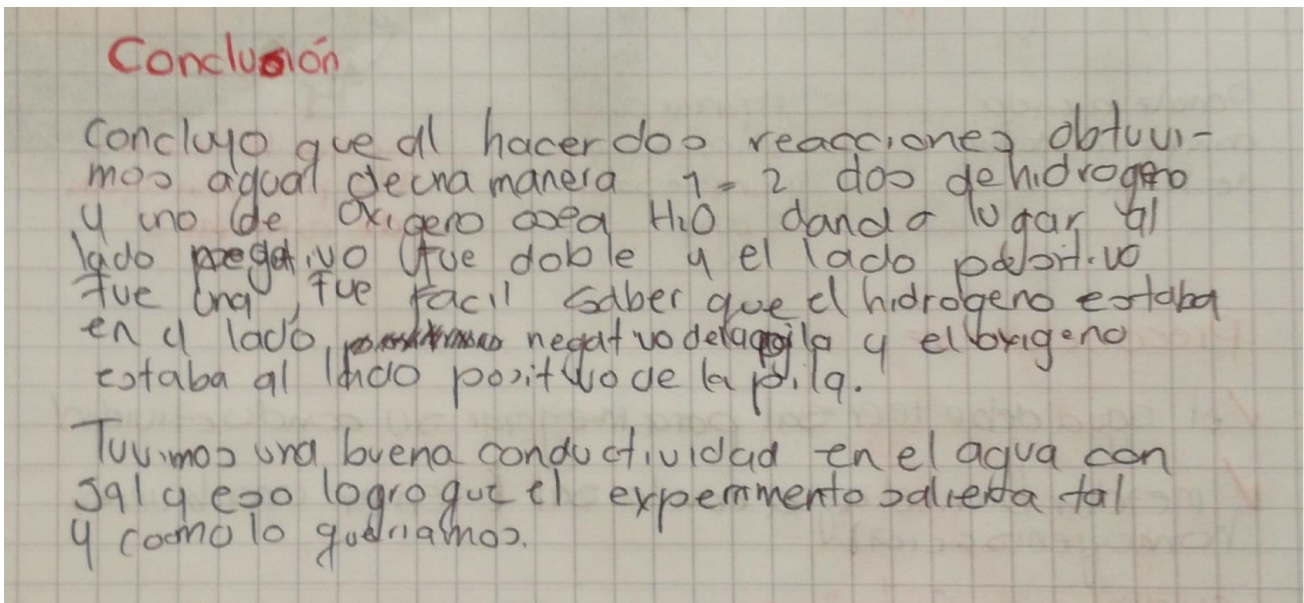 Conclusión
Concluyo que al hacer dos reacciones obtuvi-
mos agual de una manera 1-2 dos de hidrogeno
y uno de oxigeno osea H2O dando lugar al
lado negativo fue doble y el lado positivo
fue una, fue facil saber que el hidrogeno estaba
en el lado negativo de la pila y el oxigeno
estaba al lado positivo de la pila.
Tuvimos una buena conductividad en el agua con
sal y eso logro que el experimento saliera tal
y como lo queriamos.